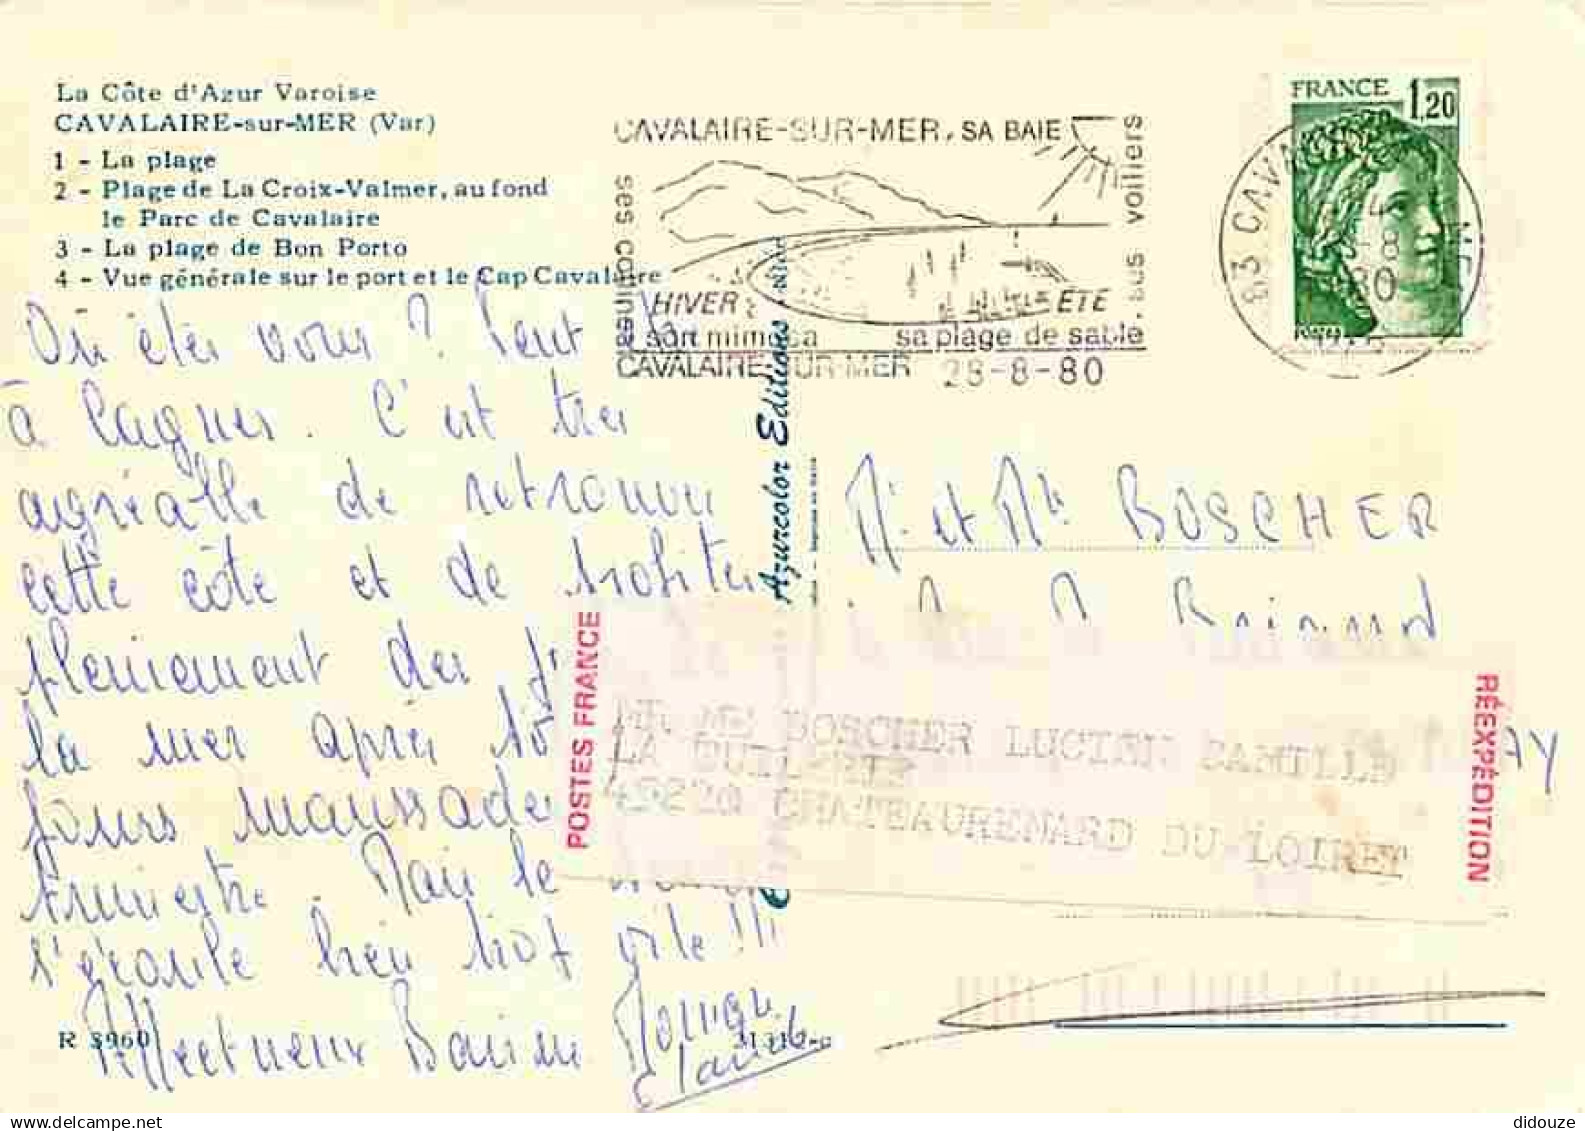 La Côte d'Azur Varoise
CAVALAIRE-sur-MER (Var)
1 - La plage
2 - Plage de La Croix-Valmer, au fond
le Parc de Cavalaire
3 - La plage de Bon Porto
4 - Vue générale sur le port et le Cap Cavalaire
CAVALAIRE-SUR-MER, SA BAIE
ses collines
sous voiliers
HIVER
ÉTÉ
son mimosa
sa plage de sable
CAVALAIRE-SUR-MER 28-8-80
FRANCE 1,20
83 CAVA
-8
80
Où êtes vous ? Peut
à Cagnes. C'est très
agréable de retrouver
cette côte et de profiter
pleinement des
la mer après 10
jours maussades
Armistre. Mais le
s'écoule bien trop vite !!!
Affectueux Baisers
Azurcolor Editions
Mr et Me BOSCHER
POSTES FRANCE
MR ME BOSCHER LUCIEN CAMILLE
LA TUILERIE
45220 CHATEAURENARD DU LOIRET
RÉEXPÉDITION
AY
R 3960
didouze